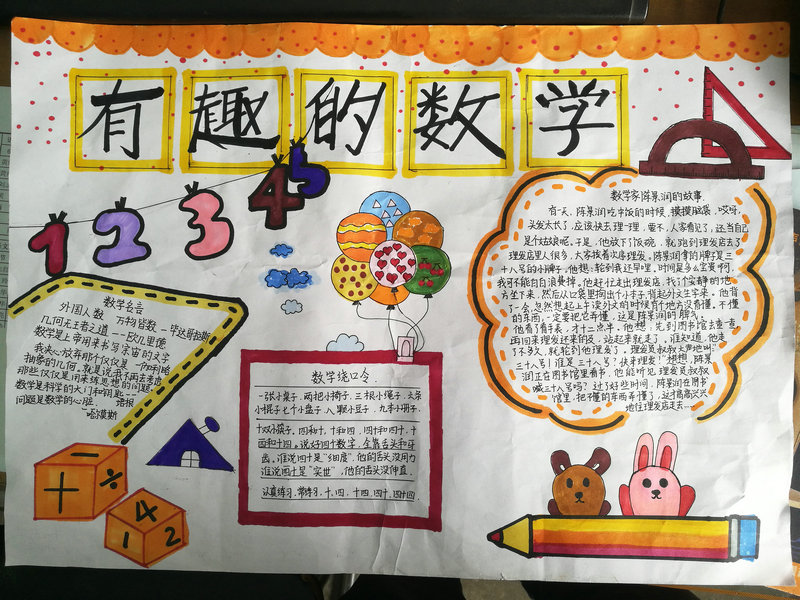 有趣的数学
1 2 3 4 5
数学名言
外国人 数 万物皆数 --毕达哥拉斯
几何无王者之道 ---欧几里德
数学是上帝用来书写宇宙的文字
我决心放弃那个仅仅是
抽象的几何。就是说我不再去考虑
那些仅仅是用来练思想的问题
数学是科学的大门和钥匙--
问题是数学的心脏 --培根
--哈模斯
+ ÷
4
1 2
数学绕口令
一张小桌子,两把小椅子,三根小绳子,
七个小盘子,八颗小豆子,九本小册子,
十双小筷子。四和十,十和四,四十和四十,十
四和十四。说好四个数字,全靠舌头和牙
齿。谁说四十是“细度”,他的舌头没用力
谁说四十是“实世”,他的舌头没伸直。
认真练习,常练习,十、四、十四、四十、四十四。
数学家陈景润的故事
有一天,陈景润吃中饭的时候,摸摸脑袋,哎呀,
头发太长了,应该快去理一理,要不,人家看见了,还当自己
是个姑娘呢。于是,他放下饭碗,就跑到理发店去了
理发店里人很多,大家挨着次序理发。陈景润拿的牌子是三
十八号的小牌子。他想:轮到我还早哩,时间是多么宝贵啊,
我可不能白白浪费掉。他赶忙走出理发店,找了个安静的地
方坐下来,然后从口袋里掏出个小本子,背起外文生字来。他背
了一会,忽然想起上午读外文的时候,有个地方没看懂。不懂
的东西,一定要把它弄懂,这是陈景润的脾气。
他看了看表,才十二点半,他想:先到图书馆去查一查,
再回来理发还来的及,站起来就走了。谁知道,他走
了不多久,就轮到他理发了。理发员叔叔大声地叫:“
三十八号!谁是三十八号?快来理发!”想想,陈景
润正在图书馆里看书,他能听见理发员叔叔
喊三十八号吗?过了好些时间,陈景润在图书
馆里,把不懂的东西弄懂了,这才高高兴兴
地往理发店走去....